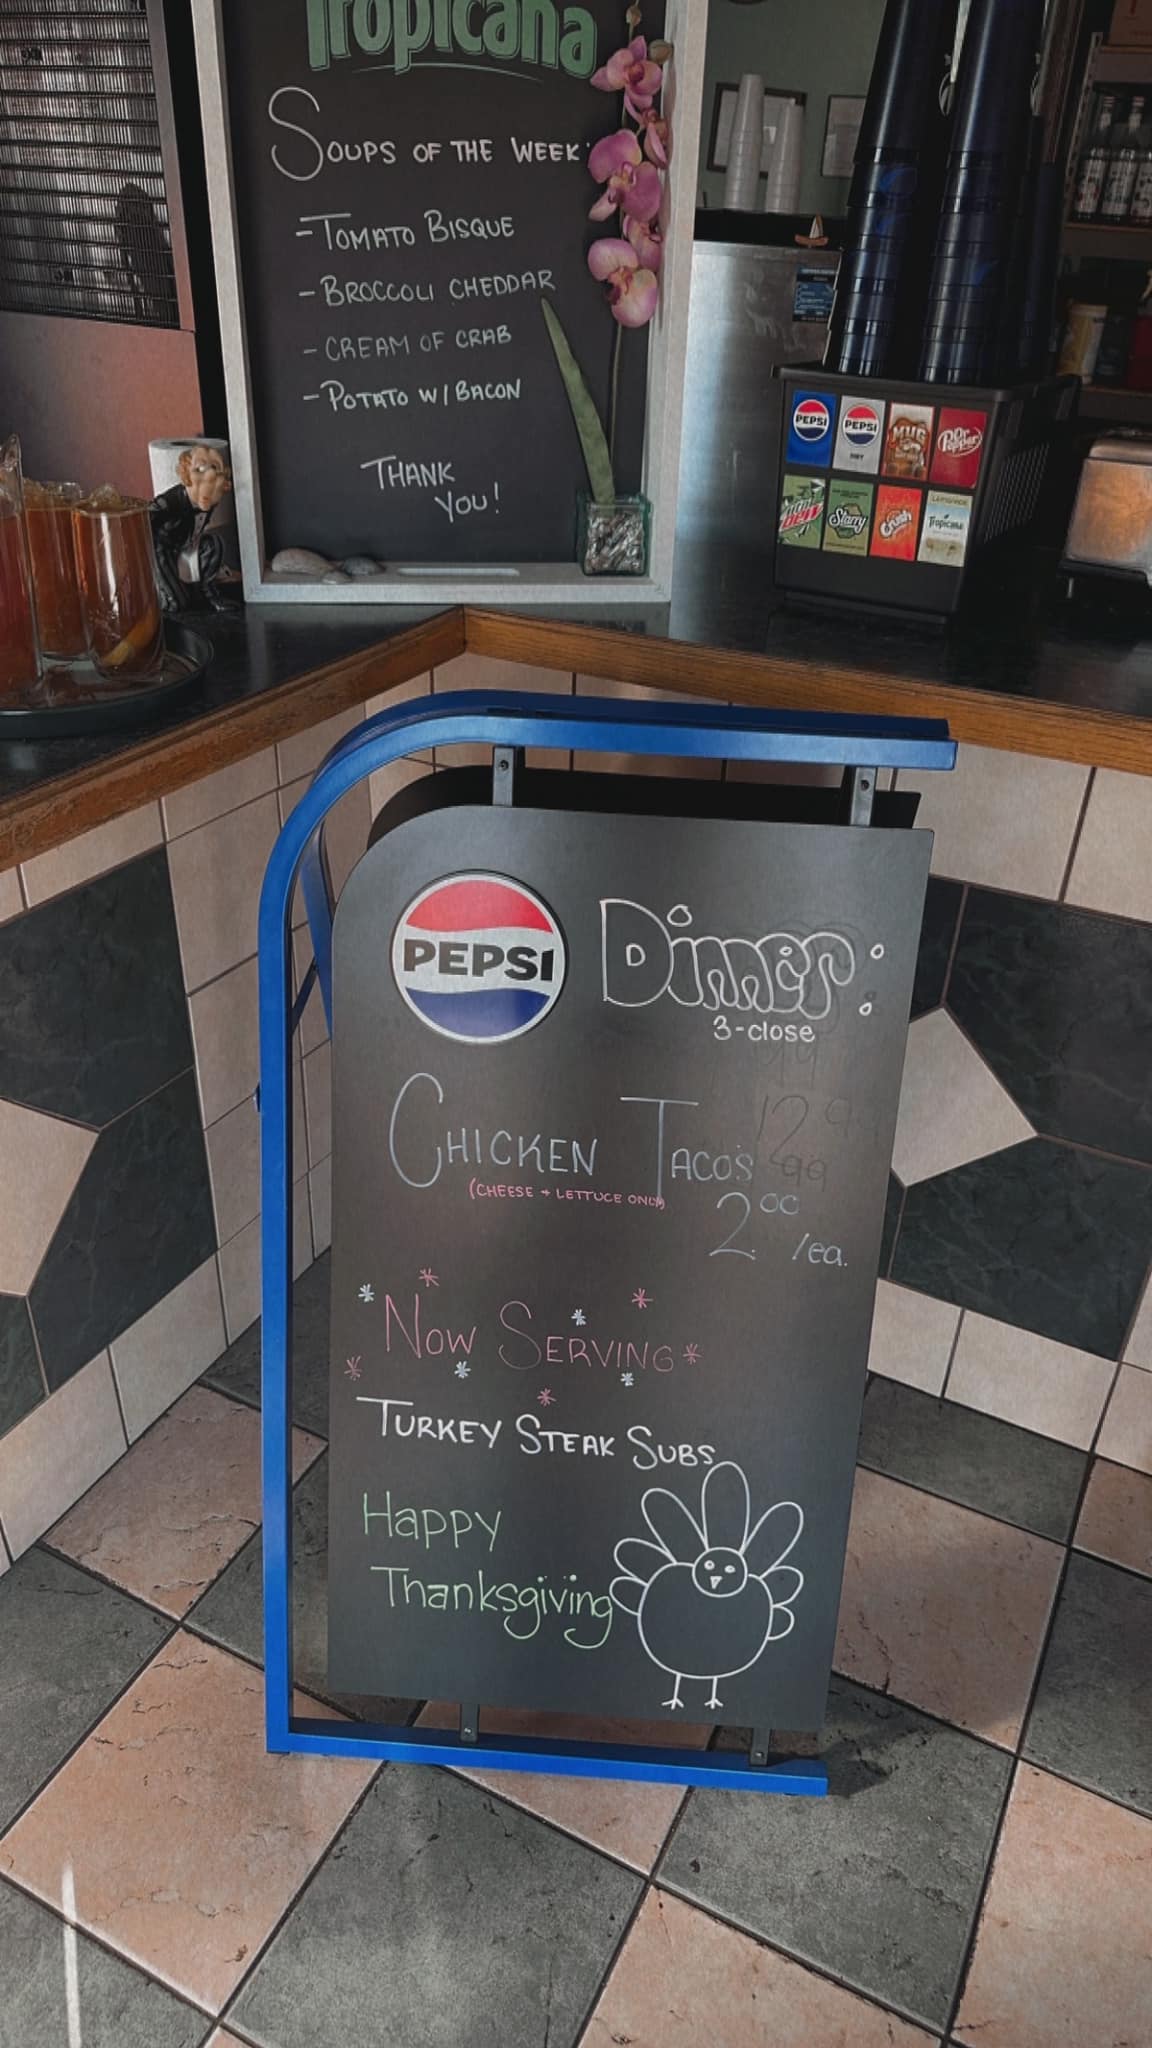 Tropicana
SOUPS OF THE WEEK:
- TOMATO BISQUE
- BROCCOLI CHEDDAR
- CREAM OF CRAB
- POTATO W/ BACON
THANK
YOU!
PEPSI
PEPSI
MUG
Dr Pepper
Mtn Dew
Starry
Crush
LEMONADE
Tropicana
PEPSI
Dinner:
3-close
CHICKEN TACO'S
(CHEESE + LETTUCE ONLY)
2.00
/ea.
NOW SERVING
TURKEY STEAK SUBS
Happy
Thanksgiving